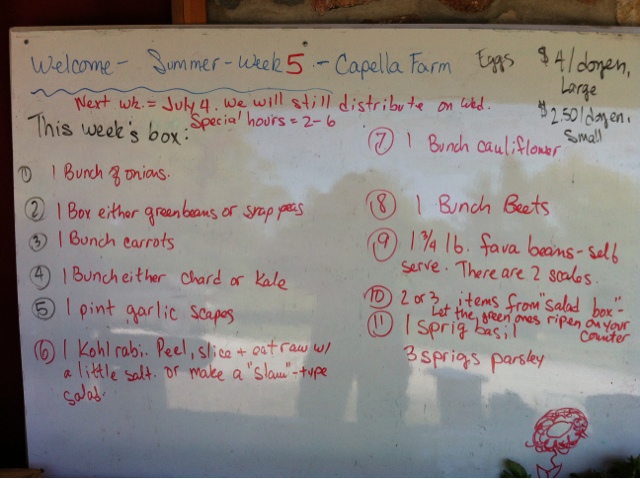 Welcome - Summer - Week 5 - Capella Farm
Eggs $4/dozen,
Large
$2.50/dozen,
Small
Next wk. = July 4. We will still distribute on Wed.
Special hours = 2-6
This week's box:
① 1 Bunch of onions.
② 1 Box either green beans or snap peas
③ 1 Bunch carrots
④ 1 Bunch either chard or Kale
⑤ 1 pint garlic scapes
⑥ 1 Kohlrabi. Peel, slice + eat raw w/
a little salt. or make a "slaw"-type
salad.
⑦ 1 Bunch cauliflower
⑧ 1 Bunch Beets
⑨ 1 3/4 lb. fava beans - self
serve. There are 2 scales.
⑩ 2 or 3 items from "salad box" -
Let the green ones ripen on your
counter
⑪ 1 sprig basil
3 sprigs parsley